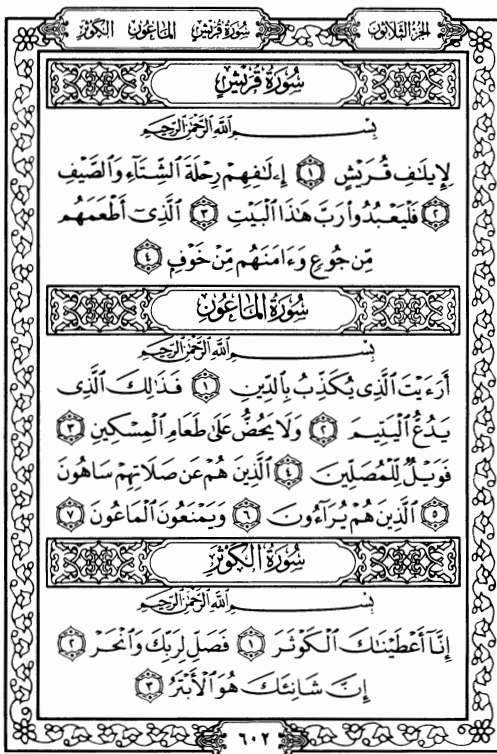 الجزء الثلاثون
سورة قريش الماعون الكوثر
سُورَةُ قُرَيْشٍ
بِسْمِ اللَّهِ الرَّحْمَٰنِ الرَّحِيمِ
لِإِيلَٰفِ قُرَيْشٍ ١ إِۦلَٰفِهِمْ رِحْلَةَ الشِّتَآءِ وَالصَّيْفِ
٢ فَلْيَعْبُدُوا۟ رَبَّ هَٰذَا الْبَيْتِ ٣ الَّذِىٓ أَطْعَمَهُم
مِّن جُوعٍ وَءَامَنَهُم مِّنْ خَوْفٍۭ ٤
سُورَةُ المَاعُونِ
بِسْمِ اللَّهِ الرَّحْمَٰنِ الرَّحِيمِ
أَرَءَيْتَ الَّذِى يُكَذِّبُ بِالدِّينِ ١ فَذَٰلِكَ الَّذِى
يَدُعُّ الْيَتِيمَ ٢ وَلَا يَحُضُّ عَلَىٰ طَعَامِ الْمِسْكِينِ ٣
فَوَيْلٌ لِّلْمُصَلِّينَ ٤ الَّذِينَ هُمْ عَن صَلَاتِهِمْ سَاهُونَ
٥ الَّذِينَ هُمْ يُرَآءُونَ ٦ وَيَمْنَعُونَ الْمَاعُونَ ٧
سُورَةُ الكَوْثَرِ
بِسْمِ اللَّهِ الرَّحْمَٰنِ الرَّحِيمِ
إِنَّآ أَعْطَيْنَٰكَ الْكَوْثَرَ ١ فَصَلِّ لِرَبِّكَ وَانْحَرْ ٢
إِنَّ شَانِئَكَ هُوَ الْأَبْتَرُ ٣
٦٠٢